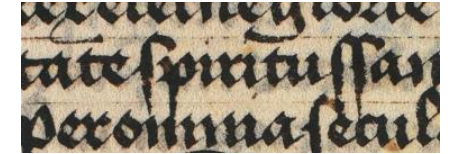 tate spiritussan
per omnia secul